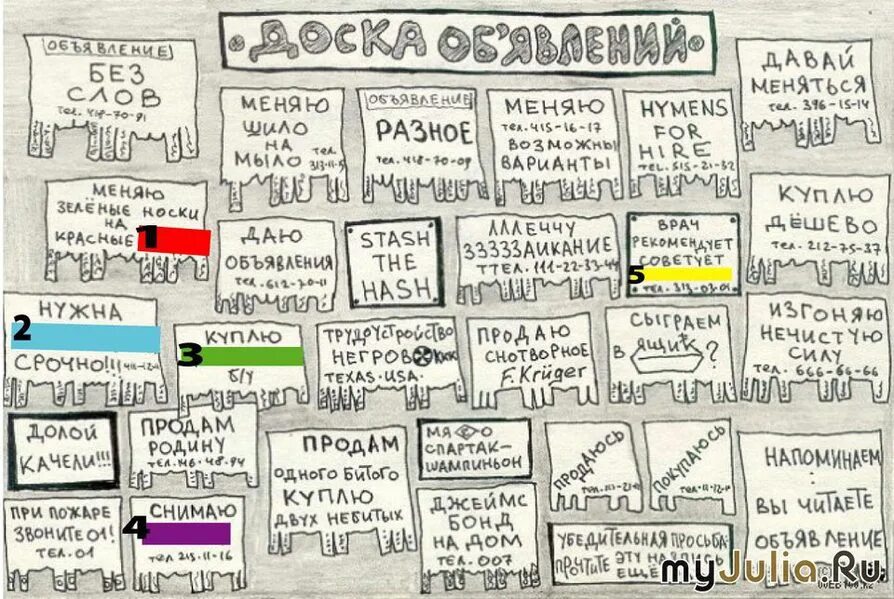 •ДОСКА ОБ'ЯВЛЕНИЙ•
ОБЪЯВЛЕНИЕ
БЕЗ
СЛОВ
тел. 418-70-91
МЕНЯЮ
ШИЛО
НА
МЫЛО тел.
313-11-5
ОБЪЯВЛЕНИЕ
РАЗНОЕ
тел. 418-70-09
МЕНЯЮ
тел. 415-16-17
ВОЗМОЖНЫ
ВАРИАНТЫ
HYMENS
FOR
HIRE
TEL. 515-21-32
ДАВАЙ
МЕНЯТЬСЯ
тел. 396-15-14
МЕНЯЮ
ЗЕЛЁНЫЕ НОСКИ
НА
КРАСНЫЕ 1
ДАЮ
ОБЪЯВЛЕНИЯ
тел. 612-70-11
STASH
THE
HASH
ЛЛЛЕЧЧУ
ЗЗЗЗЗАИКАНИЕ
ТТЕЛ. 111-22-33-44
ВРАЧ
РЕКОМЕНДУЕТ
СОВЕТУЕТ
5
ТЕЛ. 313-03-01
КУПЛЮ
ДЁШЕВО
тел. 212-75-37
НУЖНА
2
СРОЧНО!!!
КУПЛЮ
3
Б/У
ТРУДОУСТРОЙСТВО
НЕГРОВ KKK
TEXAS-USA.
ПРОДАЮ
СНОТВОРНОЕ
F. Krüger
СЫГРАЕМ
В ЯЩИК ?
ИЗГОНЯЮ
НЕЧИСТУЮ
СИЛУ
ТЕЛ. 666-66-66
ДОЛОЙ
КАЧЕЛИ!!!
ПРОДАМ
РОДИНУ
ТЕЛ. 146-48-94
ПРОДАМ
ОДНОГО БИТОГО
КУПЛЮ
ДВУХ НЕБИТЫХ
СПАРТАК-
ШАМПИНЬОН
ПРОДАЮСЬ
ПОКУПАЮСЬ
НАПОМИНАЕМ:
ВЫ ЧИТАЕТЕ
ОБЪЯВЛЕНИЕ
ПРИ ПОЖАРЕ
ЗВОНИТЕ 01!
ТЕЛ. 01
СНИМАЮ
4
тел 215-11-16
ДЖЕЙМС
БОНД
НА ДОМ
ТЕЛ. 007
УБЕДИТЕЛЬНАЯ ПРОСЬБА:
ПРОЧТИТЕ ЭТУ НАДПИСЬ
ЕЩЁ
myJulia.Ru